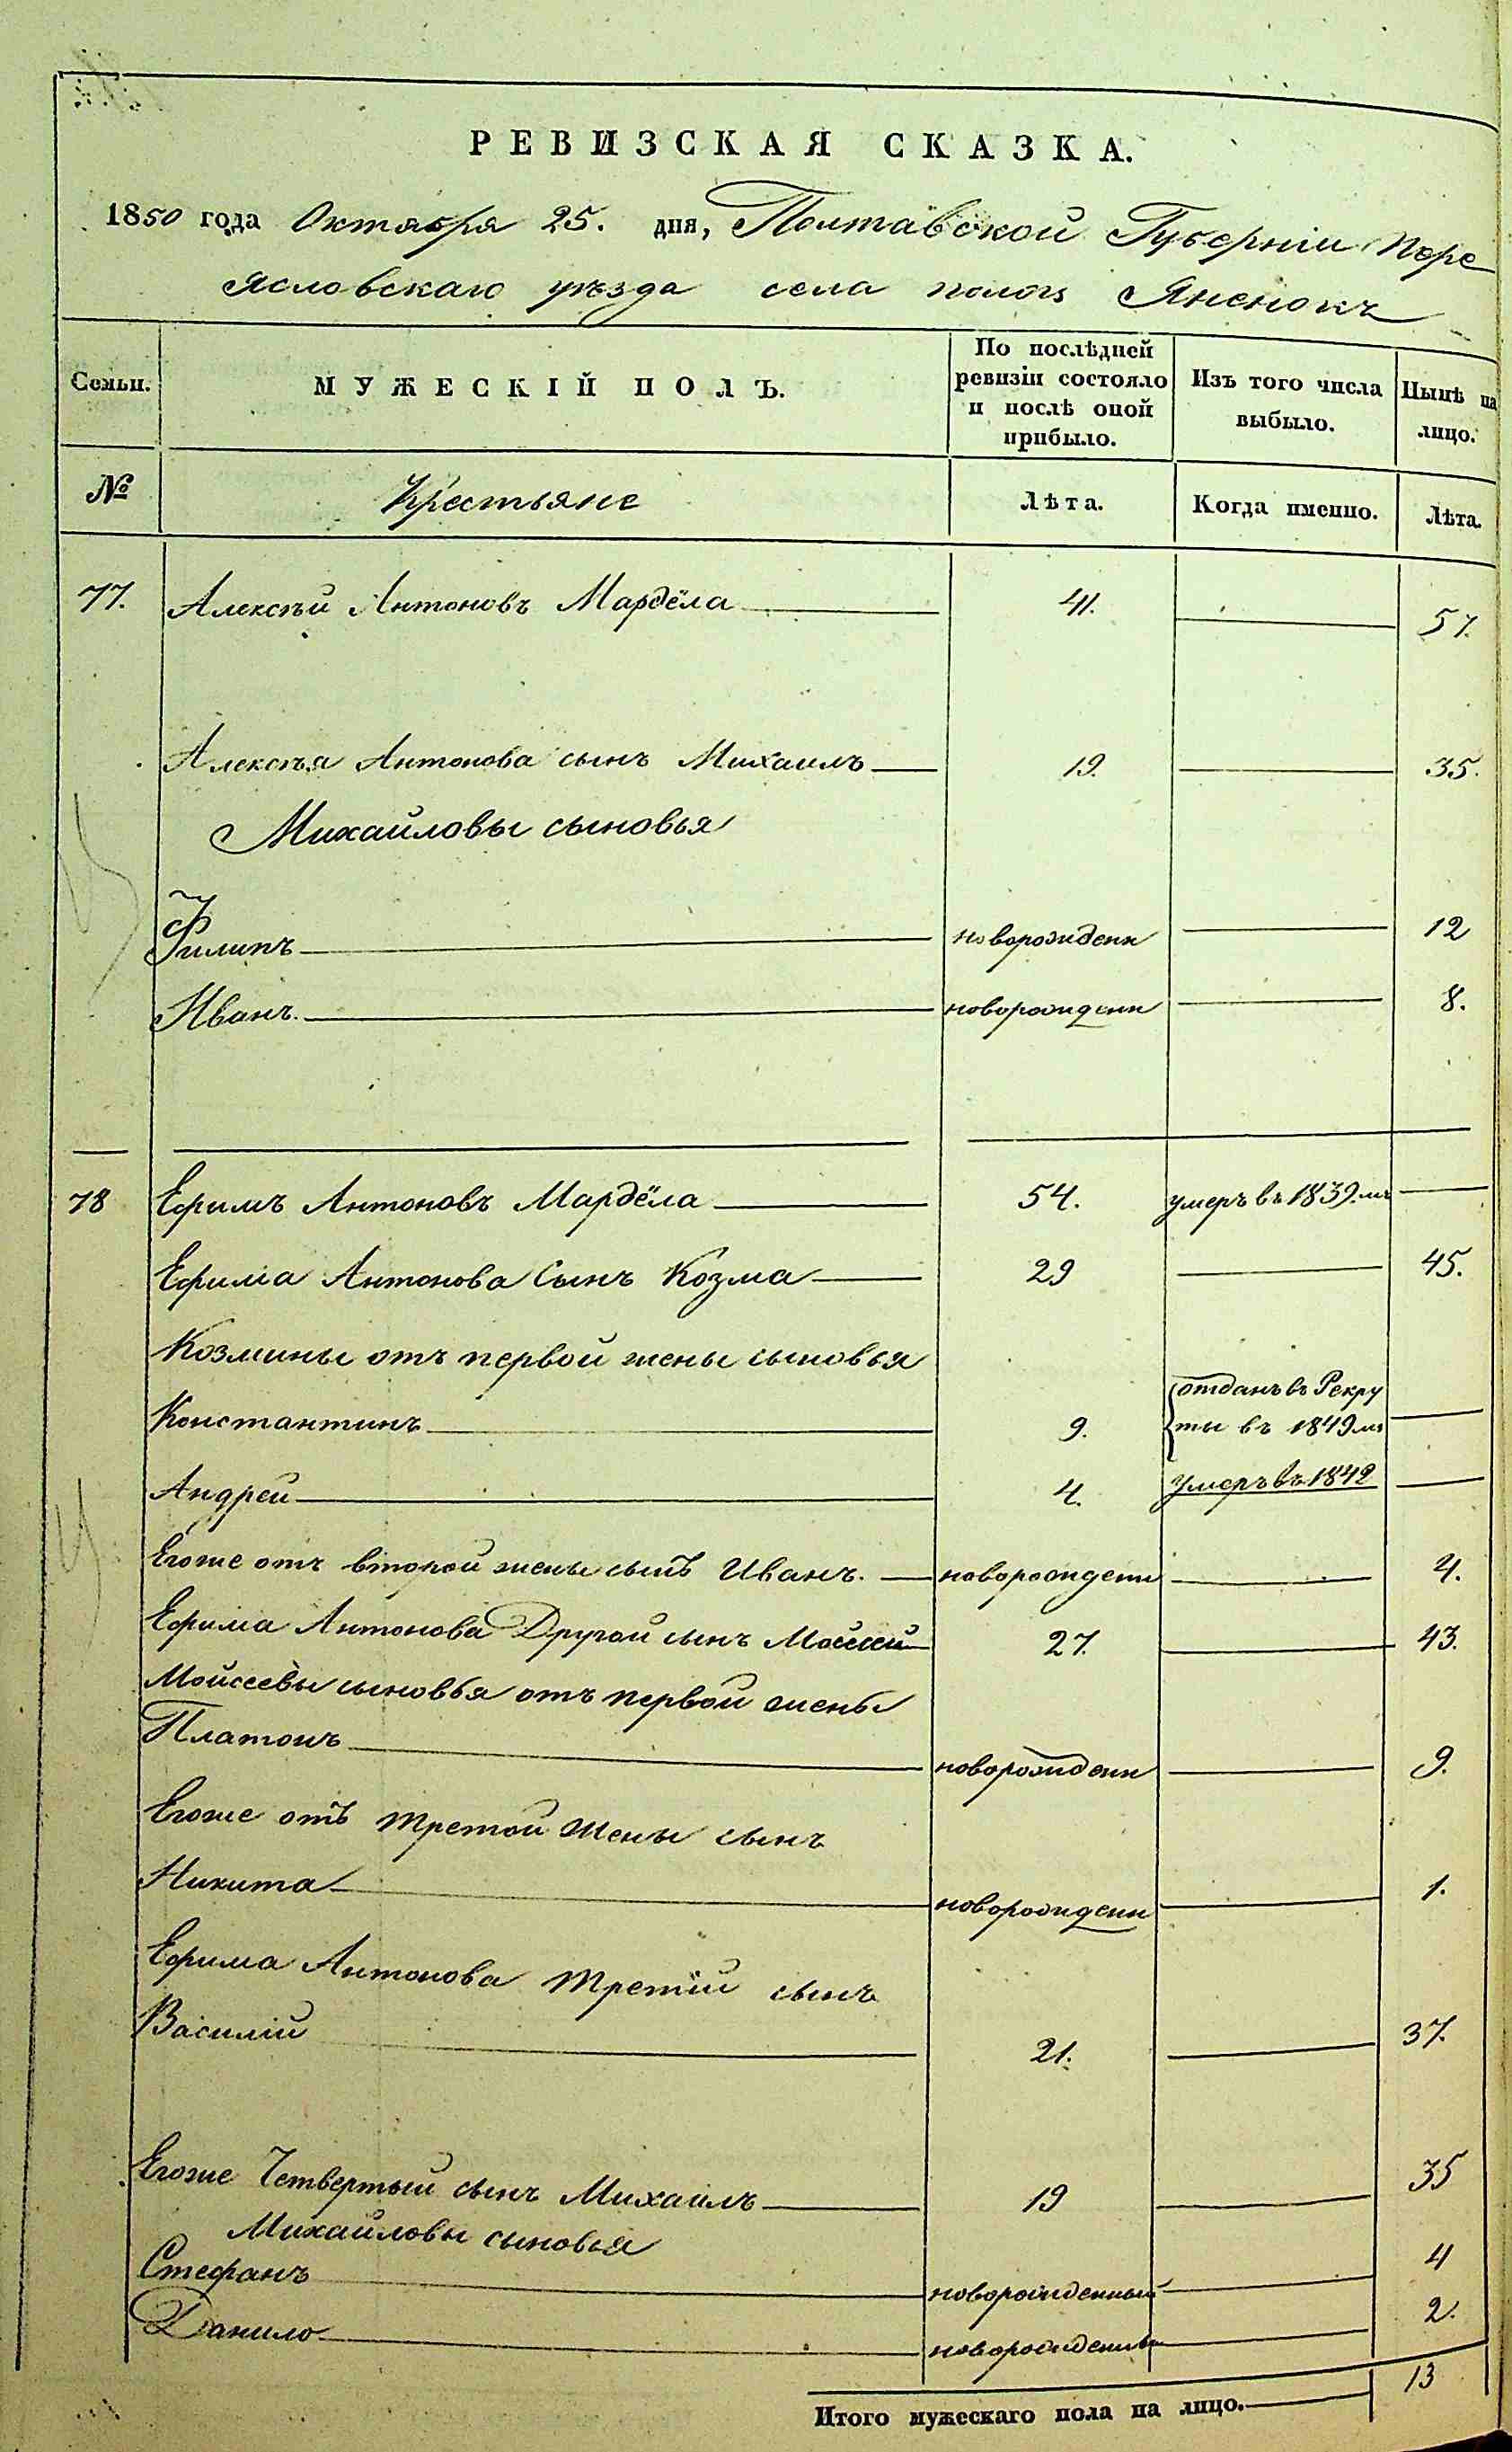 РЕВИЗСКАЯ СКАЗКА.
1850 года Октября 25. дня, Полтавской Губерніи Пере
яславскаго уѣзда села Яненокъ
Семьи.
МУЖЕСКІЙ ПОЛЪ.
По послѣдней ревизіи состояло и послѣ оной прибыло.
Изъ того числа выбыло.
Нынѣ на лицо.
№ Крестьяне Лѣта. Когда именно. Лѣта.
77. Алексѣй Антоновъ Мардёла 41. 57.
Алексѣя Антонова сынъ Михаилъ 19. 35.
Михайловы сыновья
Филипъ новорожден 12
Иванъ. новорожден 8.
78 Ефимъ Антоновъ Мардёла 54. умеръ въ 1839.мъ
Ефима Антонова Сынъ Козма 29 45.
Козмины отъ первой жены сыновья
Константинъ 9. отданъ въ Рекру
ты въ 1849мъ
Андрей 4. умеръ въ 1842
Егоже отъ второй жены сынъ Иванъ. новорожден 4.
Ефима Антонова Другой сынъ Моисей 27. 43.
Мойсеевы сыновья отъ первой жены
Платонъ новорожден 9.
Егоже отъ третой жены сынъ
Никита новорожден 1.
Ефима Антонова третій сынъ
Василій 21. 37.
Егоже Четвертый сынъ Михаилъ 19 35
Михайловы сыновья
Стефанъ новорожденный 4
Данило новорожденный 2.
Итого мужескаго пола на лицо. 13